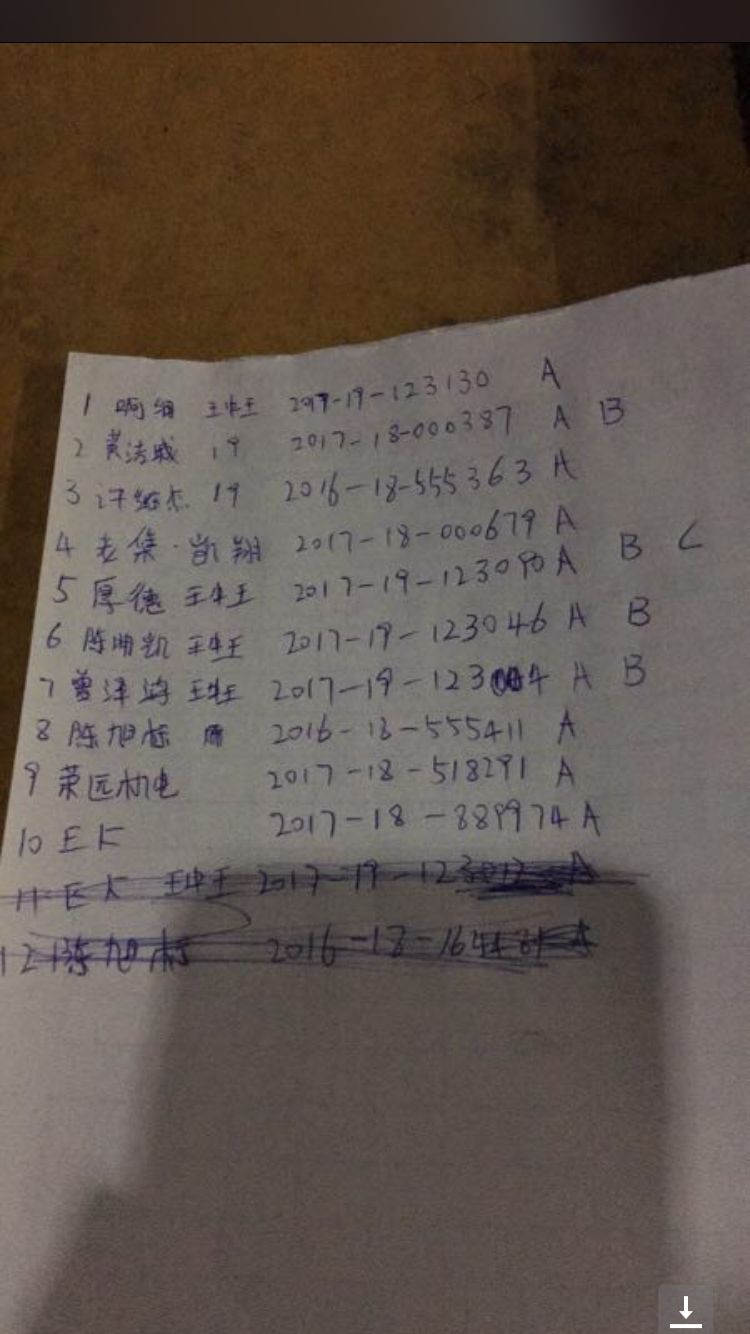 1 啊细 王中王 2017-19-123130 A
2 黄浩城 19 2017-18-000387 A B
3 许 杰 19 2016-18-555363 A
4 老集·凯翔 2017-18-000679 A
5 厚德 王中王 2017-19-123090 A B C
6 陈 凯 王中王 2017-19-123046 A B
7 曾泽鸿 王中王 2017-19-123004 A B
8 陈旭标 2016-18-555411 A
9 荣远机电 2017-18-518291 A
10 E卡 2017-18-889974 A
11 E卡 王中王 2017-19-123012 A
12 陈旭标 2016-18- A